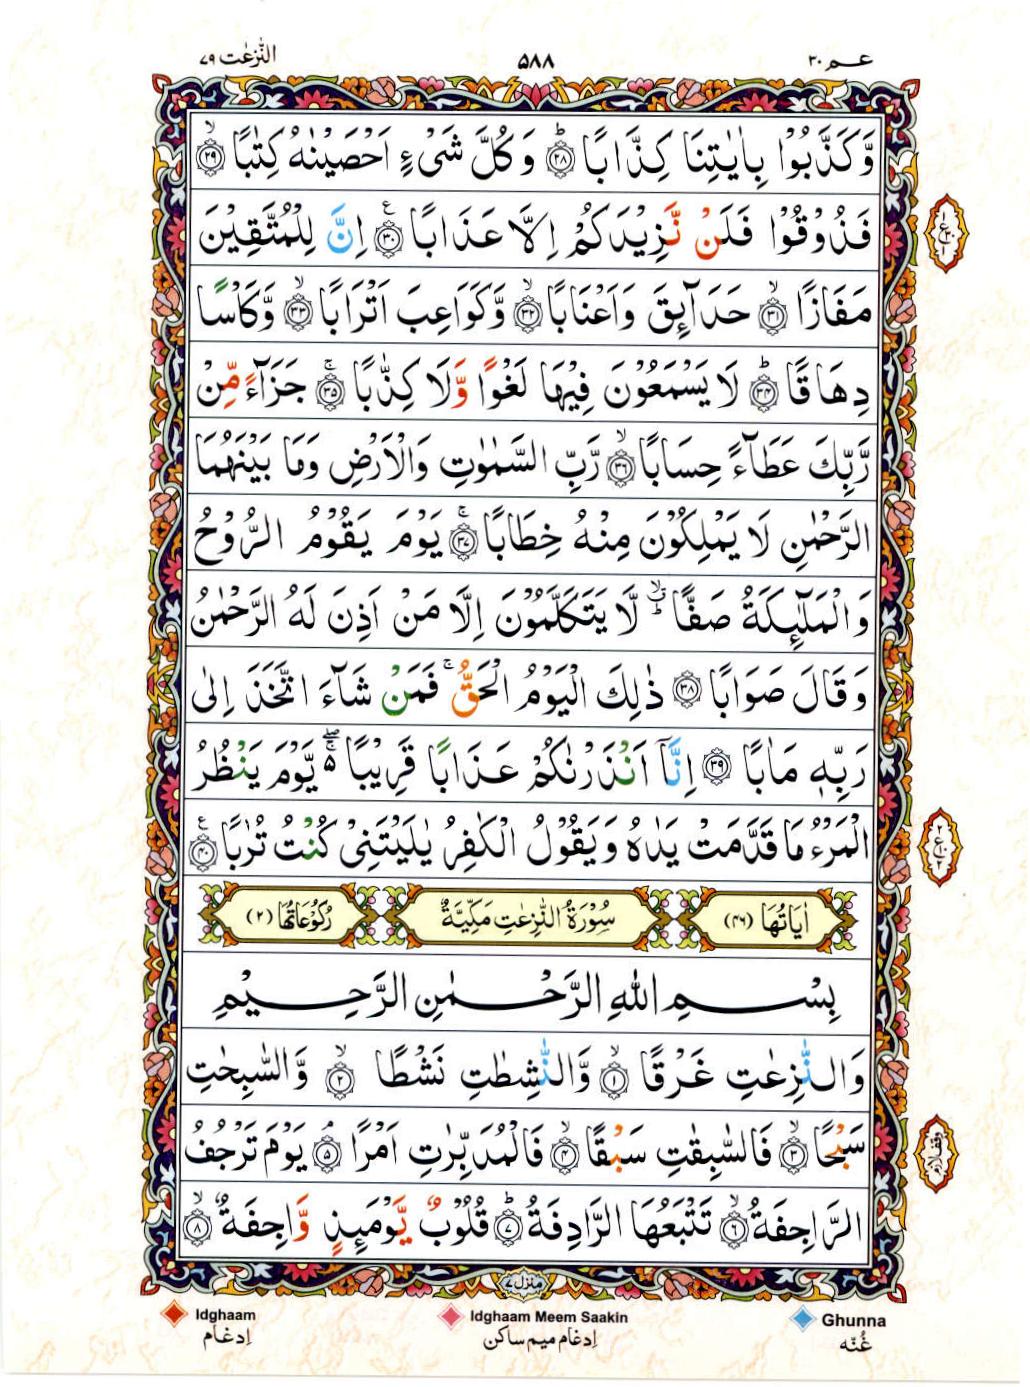 عـــم ٣٠
٥٨٨
النّٰزعٰت ٧٩
وَّكَذَّبُوْا بِاٰيٰتِنَا كِذَّابًا ؕ﴿٢٨﴾ وَكُلَّ شَىْءٍ اَحْصَيْنٰهُ كِتٰبًا ۙ﴿٢٩﴾
فَذُوْقُوْا فَلَنْ نَّزِيْدَكُمْ اِلَّا عَذَابًا ﴿٣٠﴾ ع اِنَّ لِلْمُتَّقِيْنَ
مَفَازًا ۙ﴿٣١﴾ حَدَآئِقَ وَاَعْنَابًا ۙ﴿٣٢﴾ وَّكَوَاعِبَ اَتْرَابًا ۙ﴿٣٣﴾ وَّكَاْسًا
دِهَاقًا ؕ﴿٣٤﴾ لَا يَسْمَعُوْنَ فِيْهَا لَغْوًا وَّلَا كِذّٰبًا ۚ﴿٣٥﴾ جَزَآءً مِّنْ
رَّبِّكَ عَطَآءً حِسَابًا ۙ﴿٣٦﴾ رَّبِّ السَّمٰوٰتِ وَالْاَرْضِ وَمَا بَيْنَهُمَا
الرَّحْمٰنِ لَا يَمْلِكُوْنَ مِنْهُ خِطَابًا ۚ﴿٣٧﴾ يَوْمَ يَقُوْمُ الرُّوْحُ
وَالْمَلٰٓئِكَةُ صَفًّا ؕۙ لَّا يَتَكَلَّمُوْنَ اِلَّا مَنْ اَذِنَ لَهُ الرَّحْمٰنُ
وَقَالَ صَوَابًا ﴿٣٨﴾ ذٰلِكَ الْيَوْمُ الْحَقُّ ۚ فَمَنْ شَآءَ اتَّخَذَ اِلٰى
رَبِّهٖ مَاٰبًا ﴿٣٩﴾ اِنَّآ اَنْذَرْنٰكُمْ عَذَابًا قَرِيْبًا ۖۚ يَّوْمَ يَنْظُرُ
الْمَرْءُ مَا قَدَّمَتْ يَدٰهُ وَيَقُوْلُ الْكٰفِرُ يٰلَيْتَنِىْ كُنْتُ تُرٰبًا ﴿٤٠﴾ ع
اٰيَاتُهَا (٤٦) سُوْرَةُ النّٰزِعٰتِ مَكِّيَّةٌ رُكُوْعَاتُهَا (٢)
بِسْمِ اللّٰهِ الرَّحْمٰنِ الرَّحِيْمِ
وَالنّٰزِعٰتِ غَرْقًا ۙ﴿١﴾ وَّالنّٰشِطٰتِ نَشْطًا ۙ﴿٢﴾ وَّالسّٰبِحٰتِ
سَبْحًا ۙ﴿٣﴾ فَالسّٰبِقٰتِ سَبْقًا ۙ﴿٤﴾ فَالْمُدَبِّرٰتِ اَمْرًا ۘ﴿٥﴾ يَوْمَ تَرْجُفُ
الرَّاجِفَةُ ۙ﴿٦﴾ تَتْبَعُهَا الرَّادِفَةُ ؕ﴿٧﴾ قُلُوْبٌ يَّوْمَئِذٍ وَّاجِفَةٌ ۙ﴿٨﴾
وقف لازم
منزل ٧
Idghaam
Idghaam Meem Saakin
Ghunna
اِدغام
اِدغام میم ساکن
غُنّه